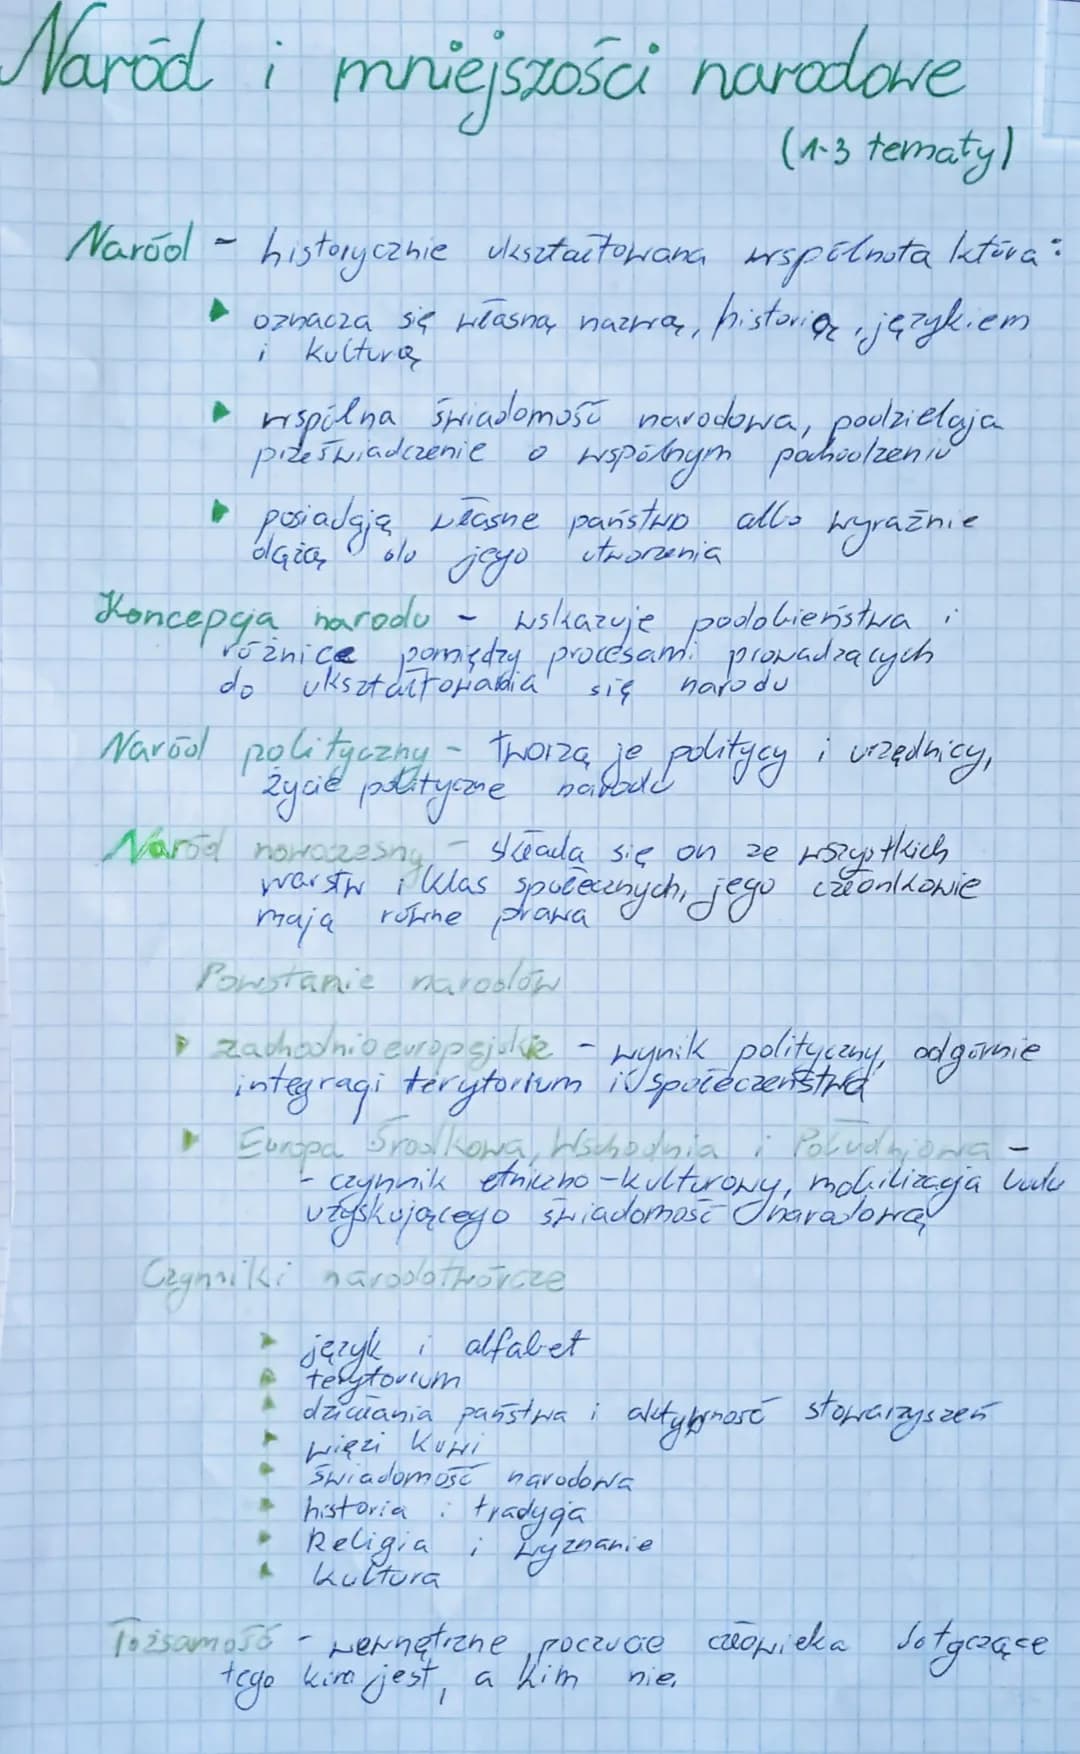 Naród i mniejszości narodowe
(1-3 tematy)
Naród - historycznie ukształtowana wspólnota która:
oznacza się własną nazwą, historią, językiem
i kulturą
wspólna świadomość narodowa, podzielają
przeświadczenie o wspólnym pochodzeniu
posiadają własne państwo albo wyraźnie
dążą do jego utworzenia
Koncepcja narodu - wskazuje podobieństwa i
różnice pomiędzy procesami prowadzących
do ukształtowania się narodu
Naród polityczny - tworzą je politycy i urzędnicy,
życie polityczne narodu
Naród nowoczesny - składa się on ze wszystkich
warstw i klas społecznych, jego członkowie
mają równe prawa
Powstanie narodów
zachodnioeuropejskie - wynik polityczny, odgórnie
integracji terytorium i społeczeństwa
Europa Środkowa, Wschodnia i Południowa -
- czynnik etniczno-kulturowy, mobilizacja ludu
uzyskującego świadomość narodową
Czynniki narodotwórcze
język i alfabet
terytorium
działania państwa i aktywność stowarzyszeń
więzi krwi
świadomość narodowa
historia i tradycja
Religia i wyznanie
kultura
Tożsamość - wewnętrzne poczucie człowieka dotyczące
tego kim jest, a kim nie.